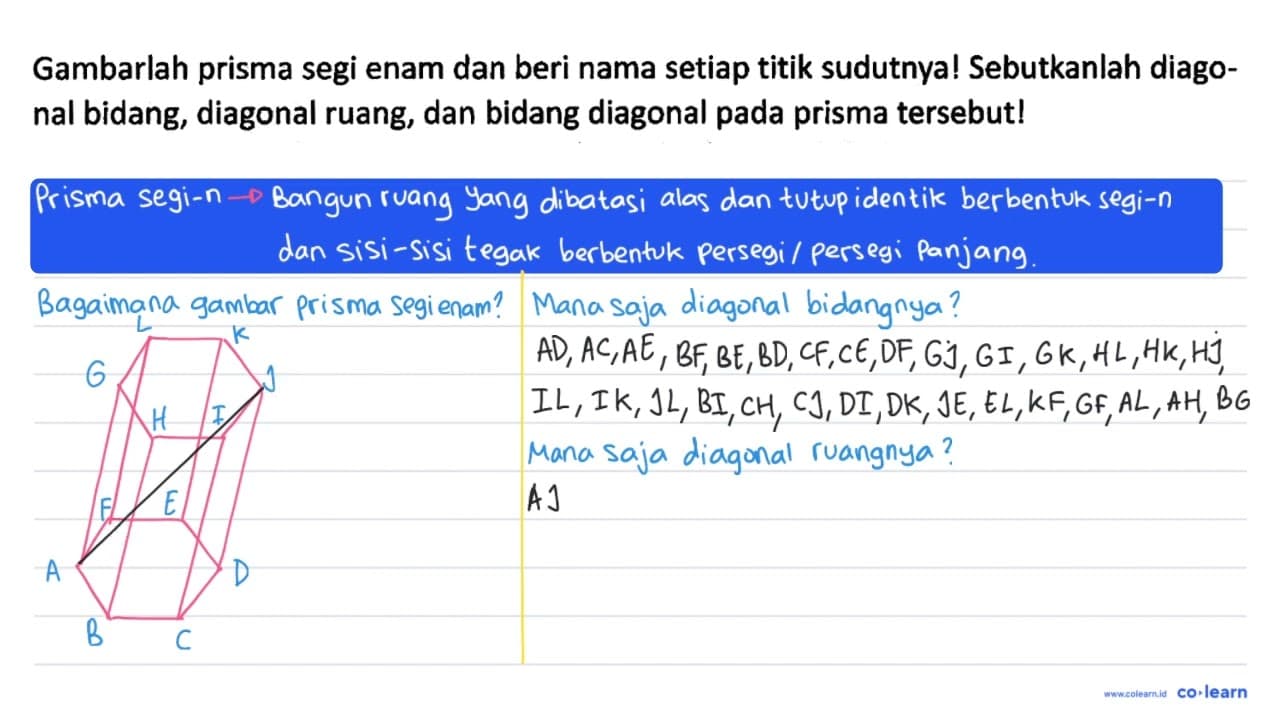 Gambarlah prisma segi enam dan beri nama setiap titik sudutnya! Sebutkanlah diago-
nal bidang, diagonal ruang, dan bidang diagonal pada prisma tersebut!
Prisma segi-n → Bangun ruang yang dibatasi alas dan tutup identik berbentuk segi-n
dan sisi-sisi tegak berbentuk persegi / persegi panjang.
Bagaimana gambar prisma segi enam?
L
K
G
J
H
I
F
E
A
D
B
C
Mana saja diagonal bidangnya?
AD, AC, AE, BF, BE, BD, CF, CE, DF, GJ, GI, GK, HL, HK, HJ,
IL, IK, JL, BI, CH, CJ, DI, DK, JE, EL, KF, GF, AL, AH, BG
Mana saja diagonal ruangnya?
AJ
www.colearn.id co·learn